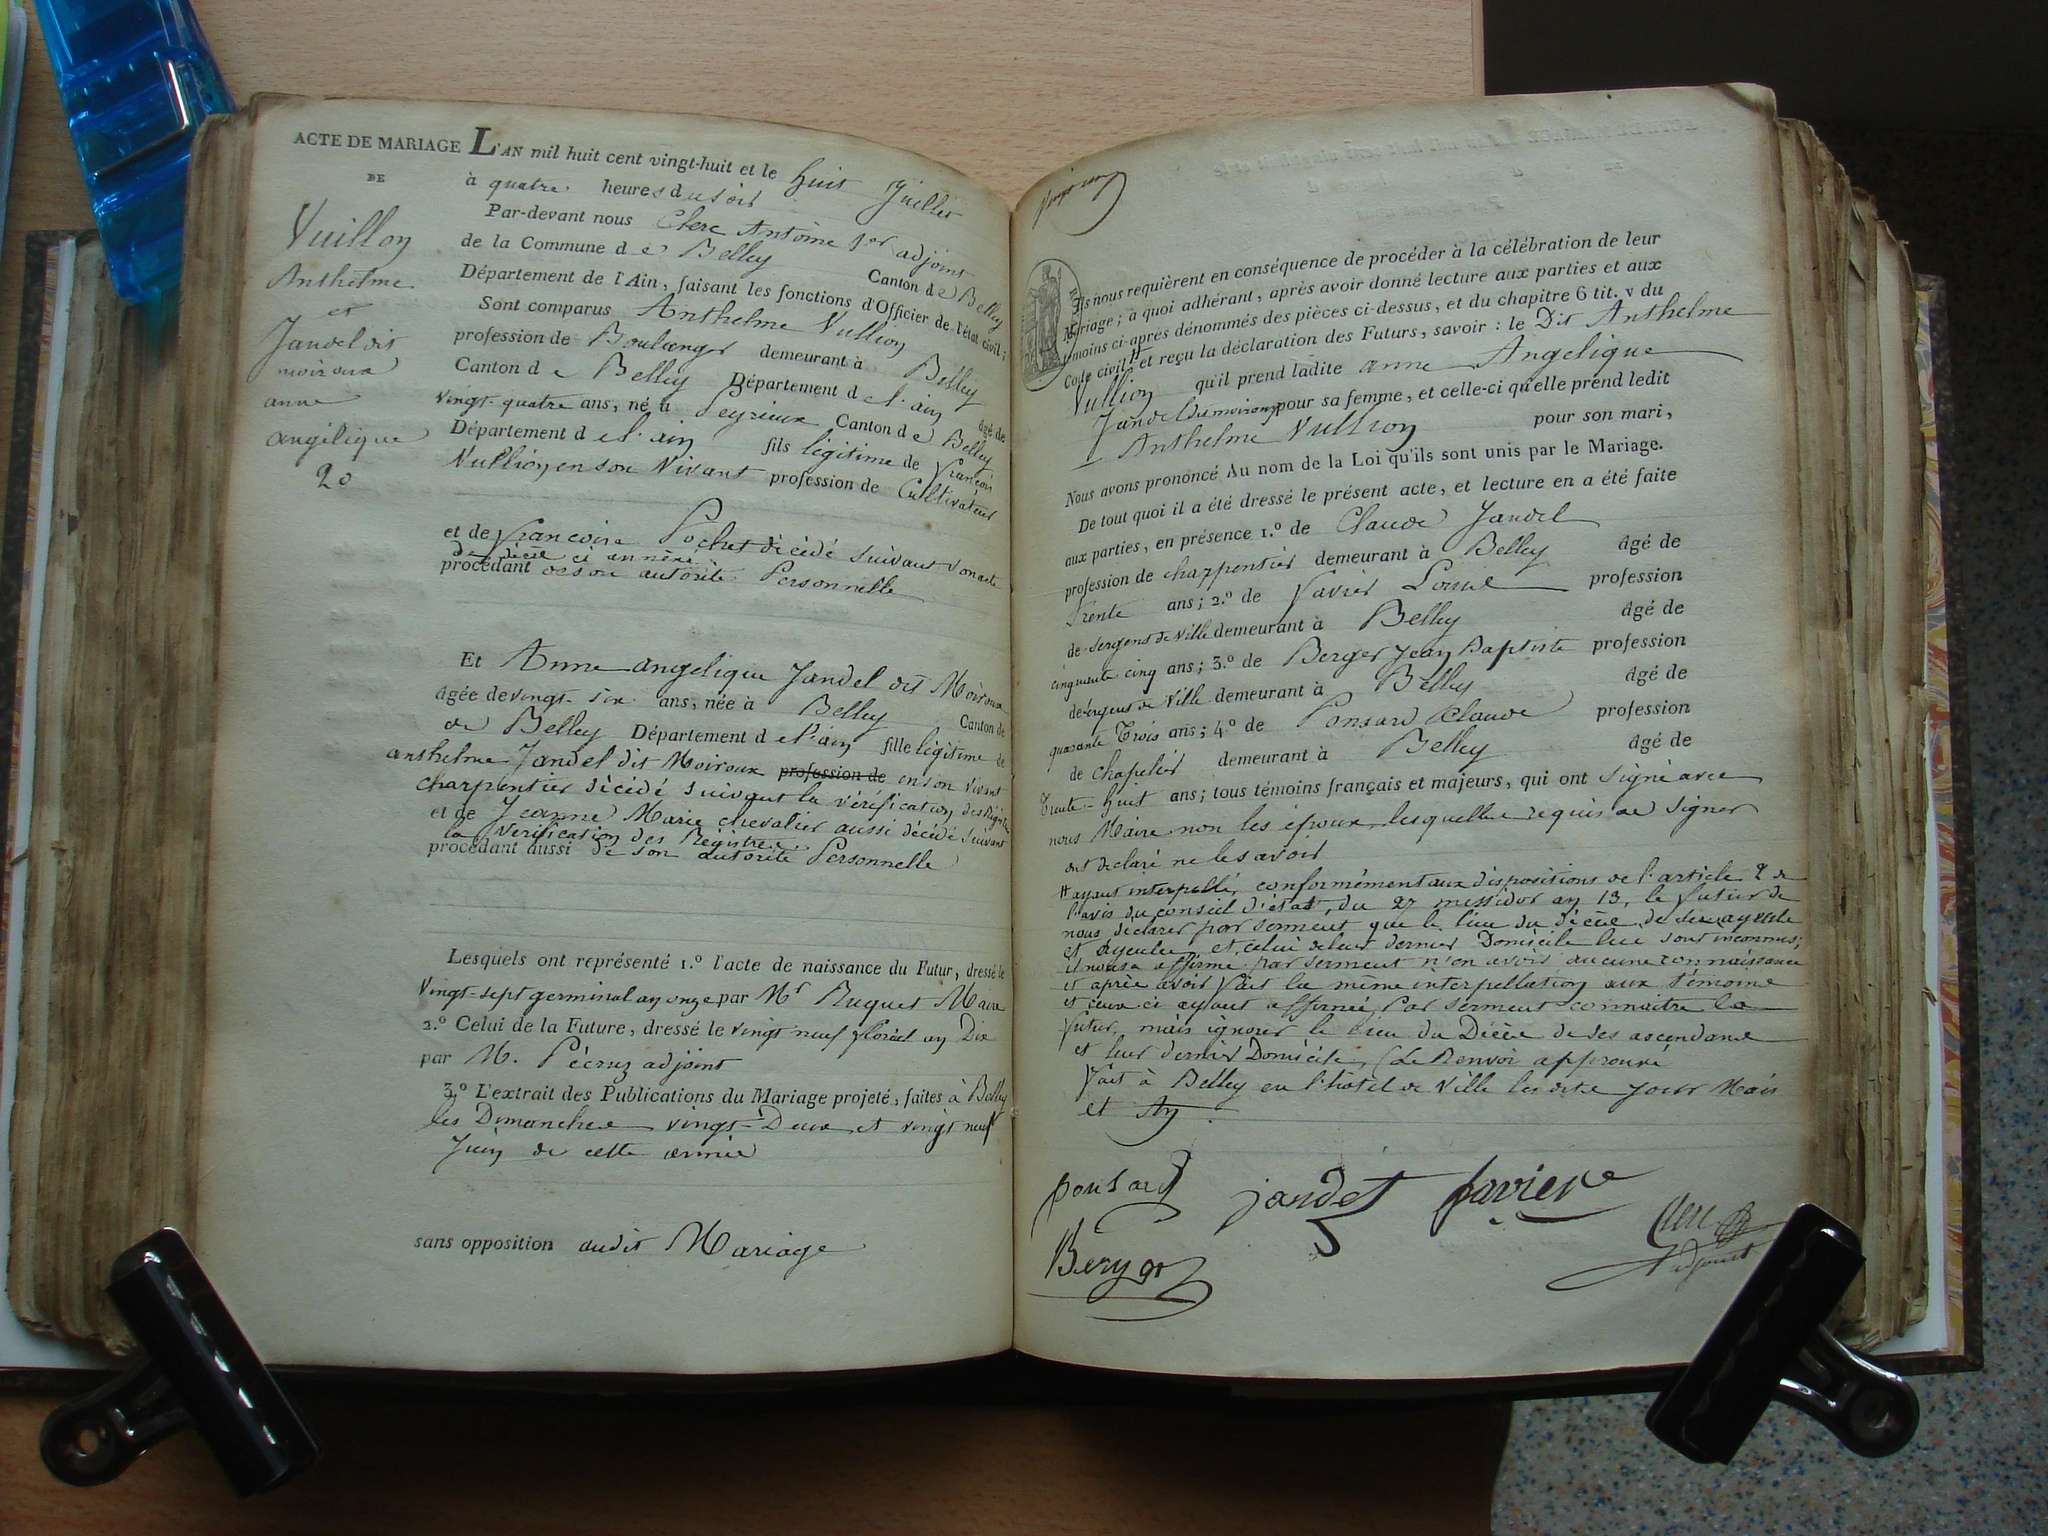 ACTE DE MARIAGE
DE
Vuillon
Anthelme
et
Jandel dit
moiroux
anne
angélique
20
L'AN mil huit cent vingt-huit et le huit Juillet
à quatre heures du soir
Par-devant nous Clerc Antoine 1er adjoint
de la Commune de Belley Canton de Belley
Département de l'Ain, faisant les fonctions d'Officier de l'état civil;
Sont comparus Anthelme Vullion
profession de Boulanger demeurant à Belley
Canton de Belley Département de l'ain âgé de
vingt-quatre ans, né à Peyrieux Canton de Belley
Département de l'ain fils légitime de françois
Vullion en son Vivant profession de Cultivateur
et de françoise Pochet décédé suivant son acte
de décès ci annéxé
procédant de son autorité Personnelle
Et Anne angelique Jandel dit Moiroux
âgée de vingt-six ans, née à Belley Canton de
de Belley Département de l'ain fille légitime de
anthelme Jandel dit Moiroux profession de en son vivant
charpentier décédé suivant la vérification des Régistres
et de Jeanne Marie chevalier aussi décédé suivant
la vérification des Régistres
procédant aussi de son autorité Personnelle
Lesquels ont représenté 1.º l'acte de naissance du Futur, dressé le
vingt-sept germinal an onze par Mr Ruguet Maire
2.º Celui de la Future, dressé le vingt neuf floréal an Dix
par M. Pécruz adjoint
3.º L'extrait des Publications du Mariage projeté, faites à Belley
les Dimanches vingt-Deux et vingt neuf
Juin de cette année
sans opposition audit Mariage
Ils nous requièrent en conséquence de procéder à la célébration de leur
Mariage; à quoi adhérant, après avoir donné lecture aux parties et aux
témoins ci-après dénommés des pièces ci-dessus, et du chapitre 6 tit. v du
Code civil # et reçu la déclaration des Futurs, savoir: le Dit Anthelme
Vullion qu'il prend ladite anne Angelique
Jandel dit moiroux pour sa femme, et celle-ci qu'elle prend ledit
Anthelme Vullion pour son mari,
Nous avons prononcé Au nom de la Loi qu'ils sont unis par le Mariage.
De tout quoi il a été dressé le présent acte, et lecture en a été faite
aux parties, en présence 1.º de Claude Jandel
profession de charpentier demeurant à Belley âgé de
Trente ans; 2.º de Xavier profession
de sergent de Ville demeurant à Belley âgé de
cinquante cinq ans; 3.º de Berger Jean Baptiste profession
de sergent de Ville demeurant à Belley âgé de
quarante Trois ans; 4.º de Ponsard Claude profession
de chapelier demeurant à Belley âgé de
Trente-huit ans; tous témoins français et majeurs, qui ont signé avec
nous Maire non les époux lesquelle requis de signer
ont déclaré ne le savoir
# ayant interpellé, conformément aux dispositions de l'article 2 de
l'avis du conseil d'état, du 27 messidor an 13, le futur de
nous déclarer par serment que le lieu du décès de ses ayeuls
et ayeules et celui de leur dernier Domicile lui sont inconnus;
il nous a affirmé par serment n'en avoir aucune connaissance
et après avoir fait la même interpellation aux témoins
et ceux ci ayant affirmé par serment connaitre le
futur, mais ignorer le lieu du Décès de ses ascendans
et leur dernier Domicile, (Le Renvoi approuvé
fait à Belley en l'hôtel de Ville les dits jour Mois
et An
ponsard jandet favier
Berger Clerc
adjoint